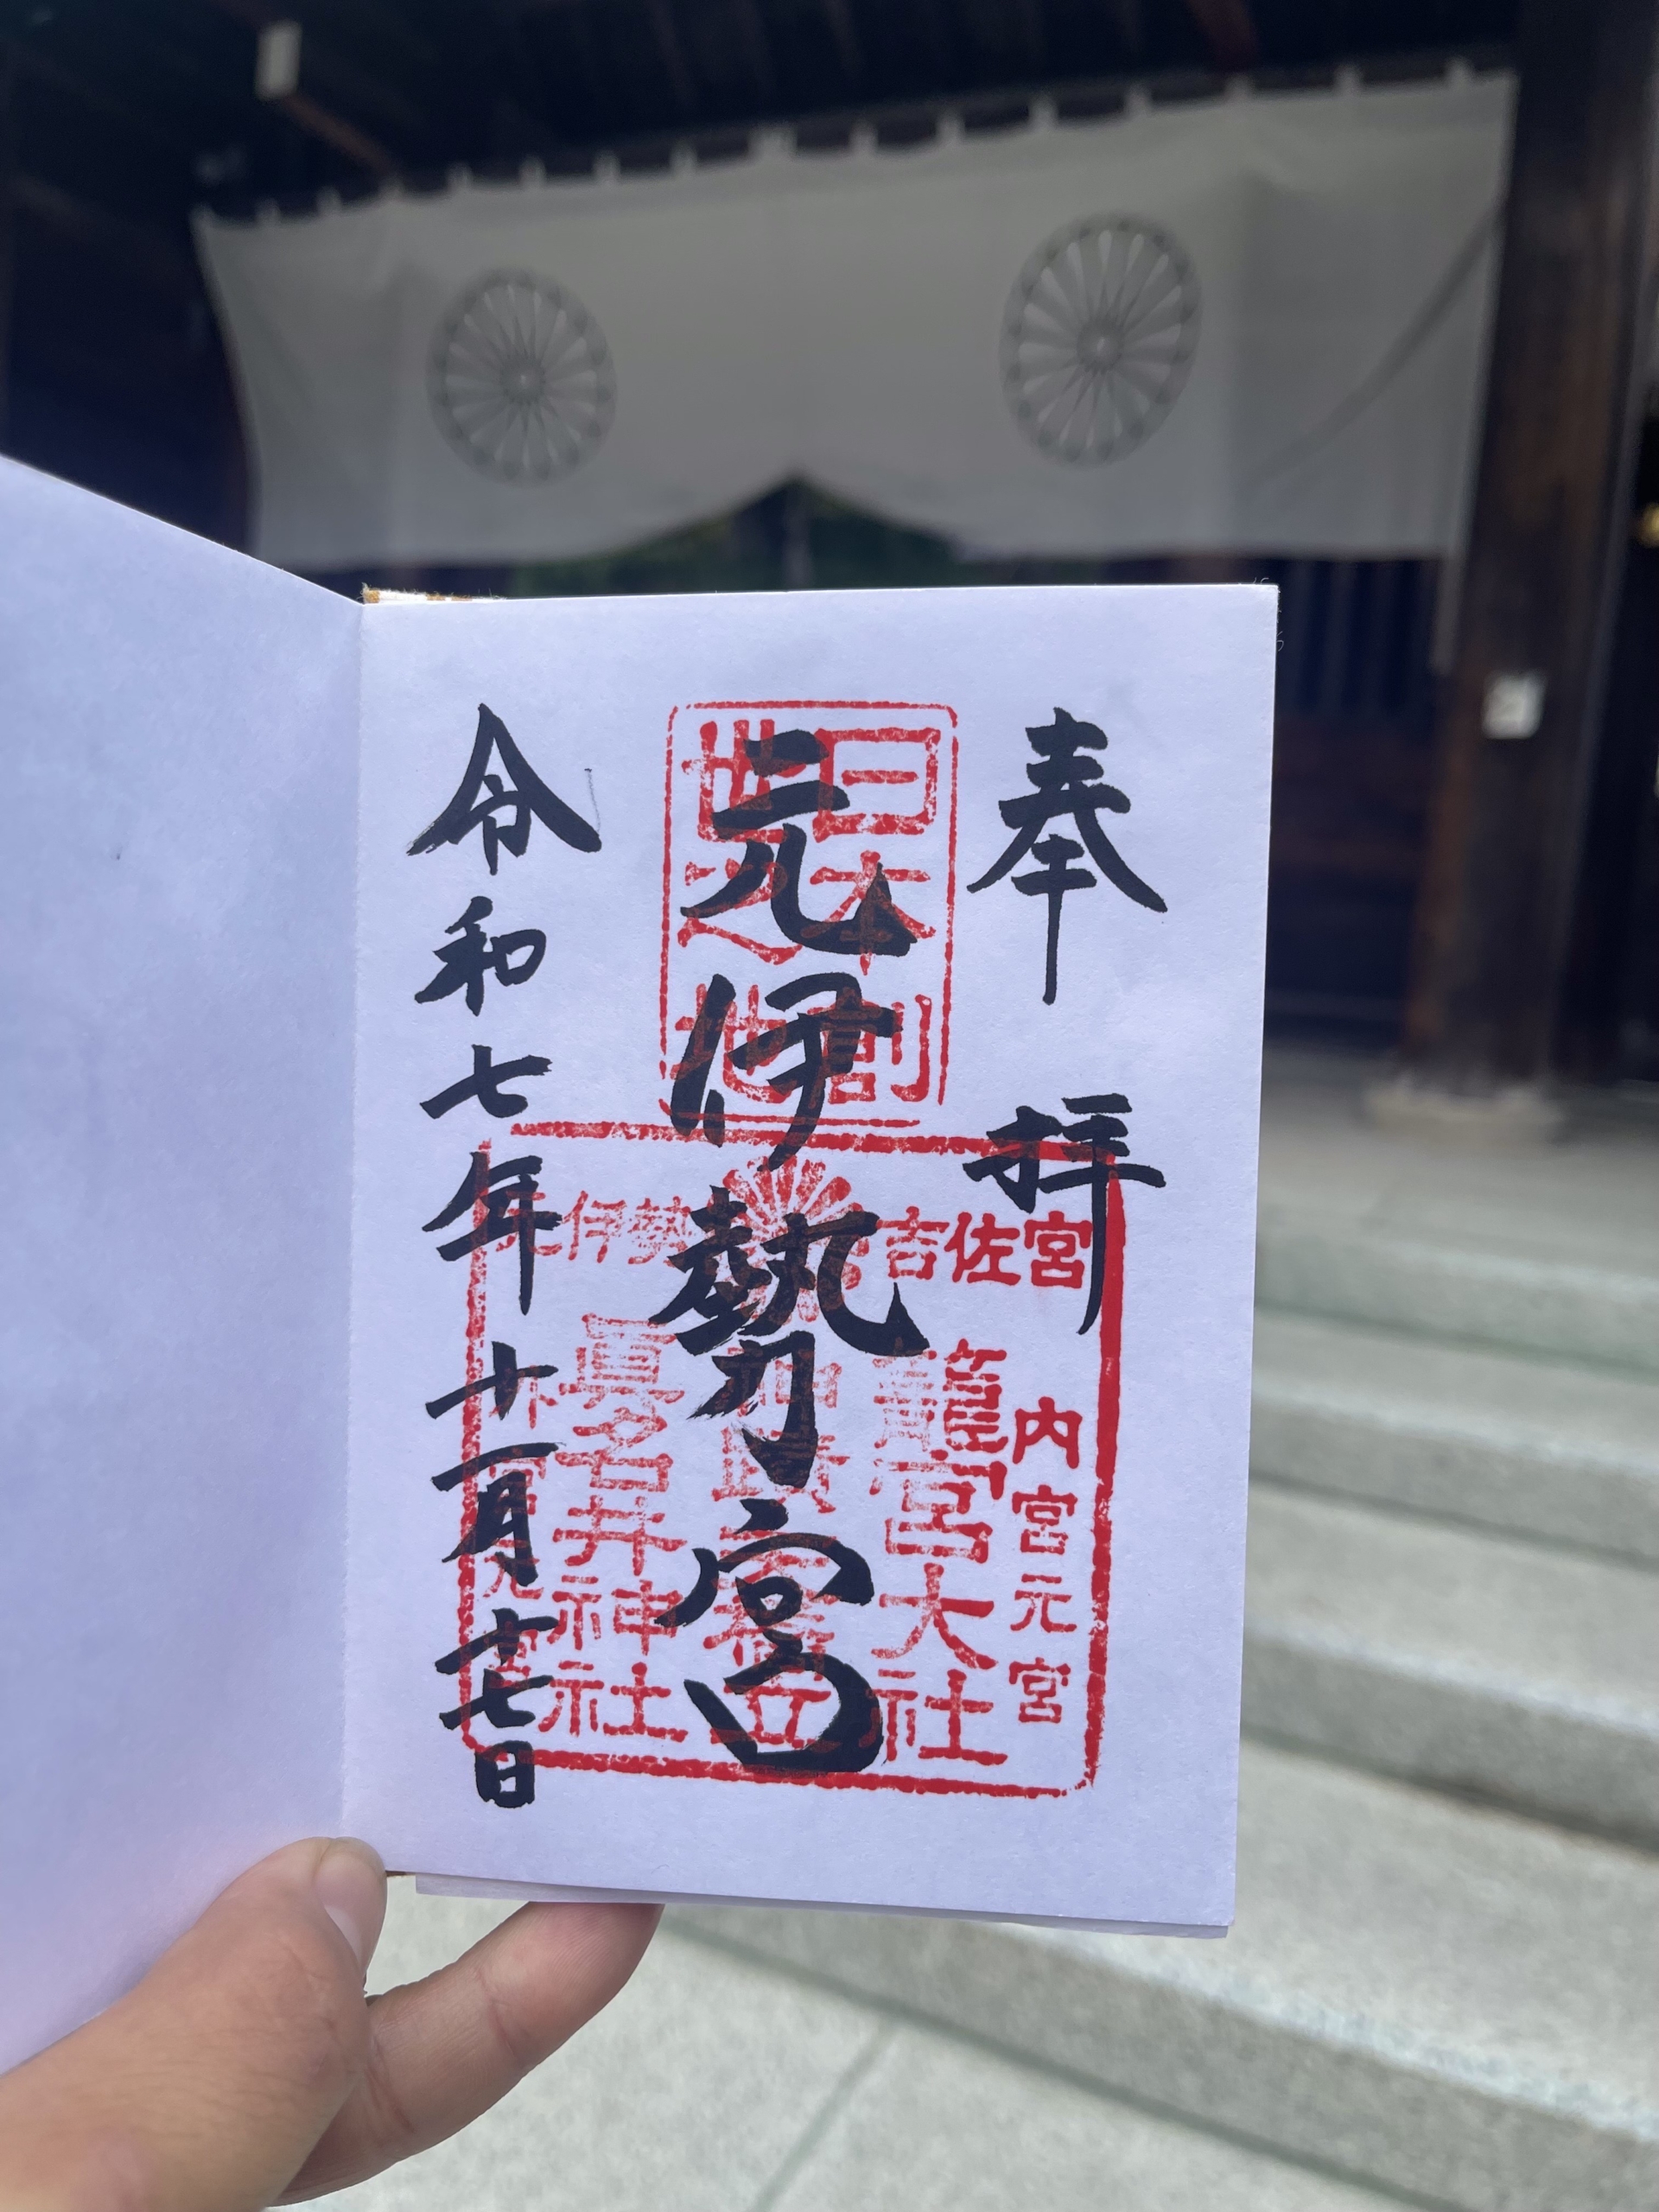 奉拝
日本創
世之地
元伊勢宮
元伊勢 吉佐宮
内宮元宮
籠宮大社
眞名井神社
外宮元宮
令和七年十一月十七日